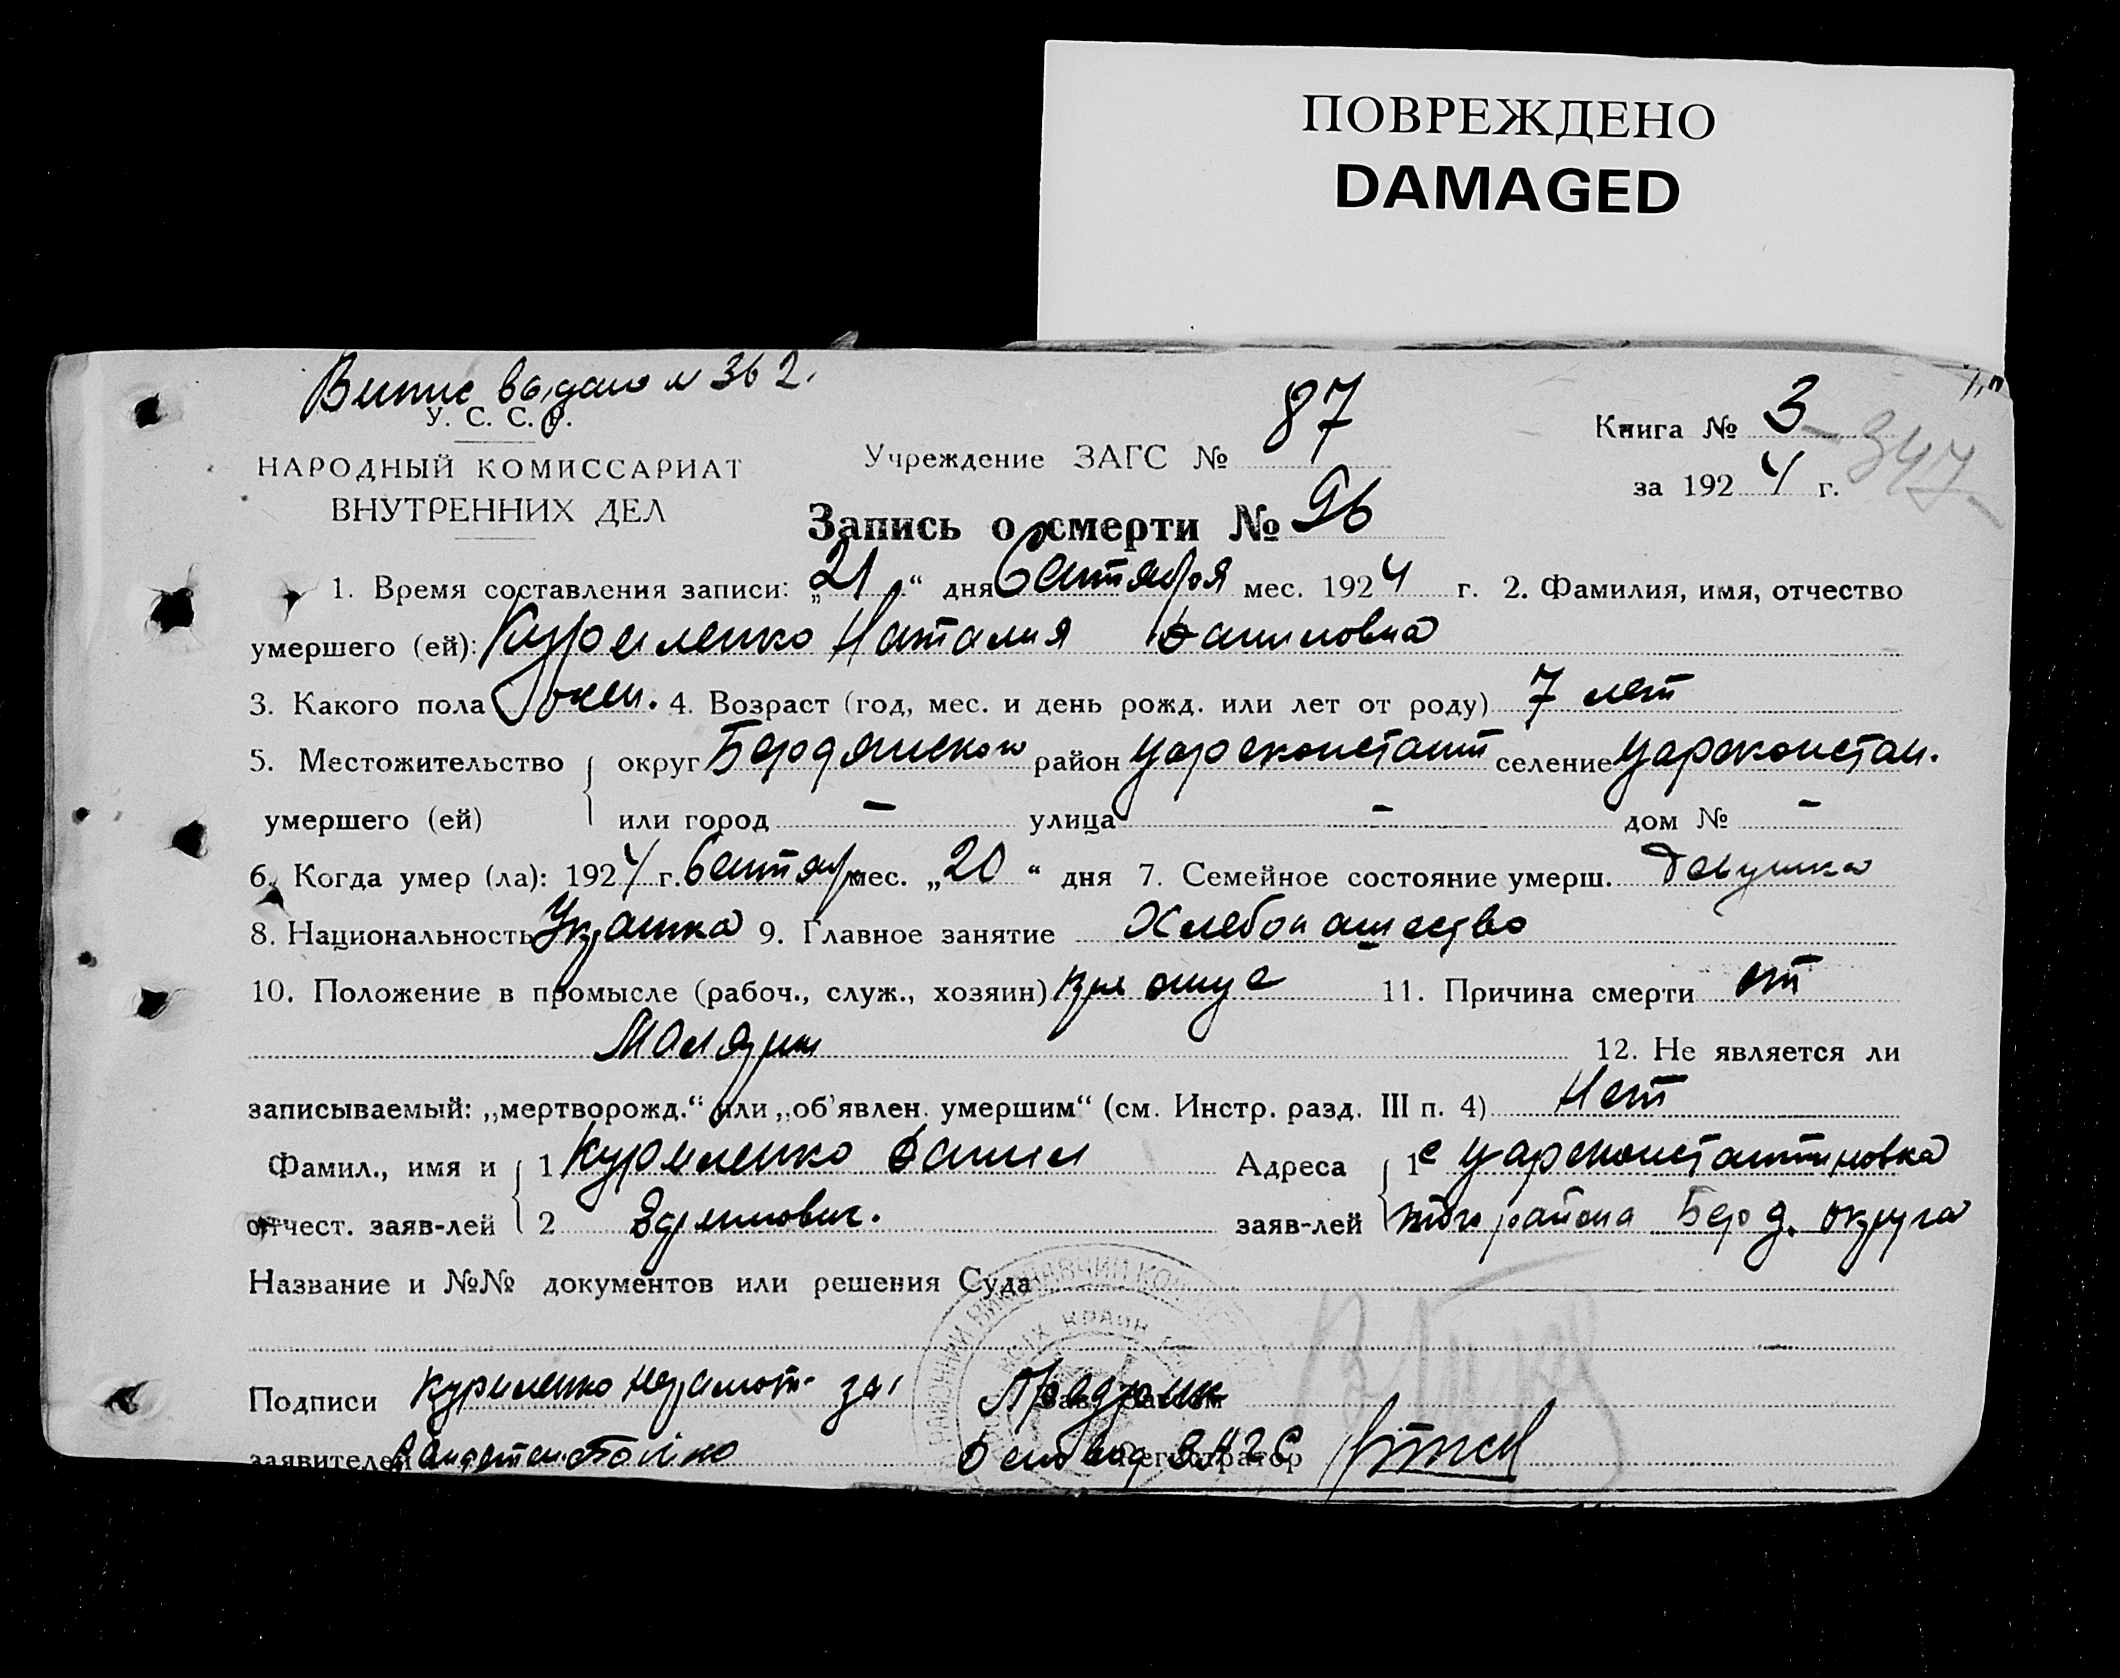 ПОВРЕЖДЕНО
DAMAGED
Випис выдано № 362.
У. С. С. Р.
НАРОДНЫЙ КОМИССАРИАТ
ВНУТРЕННИХ ДЕЛ
Учреждение ЗАГС № 87
Книга № 3
347
за 1924 г.
Запись о смерти № 96
1. Время составления записи: „21“ дня Сентября мес. 1924 г. 2. Фамилия, имя, отчество
умершего (ей): Куриленко Наталия Даниловна
3. Какого пола жен. 4. Возраст (год, мес. и день рожд. или лет от роду) 7 лет
5. Местожительство округ Бердянском район Цареконстант селение Цареконстан.
умершего (ей) или город — улица — дом № —
6. Когда умер (ла): 1924 г. Сентяб мес. „20“ дня 7. Семейное состояние умерш. Девушка
8. Национальность Украинка 9. Главное занятие Хлебопашество
10. Положение в промысле (рабоч., служ., хозяин) 11. Причина смерти от
Малярии 12. Не является ли
записываемый: „мертворожд.“ или „об'явлен. умершим“ (см. Инстр. разд. III п. 4) Нет
Фамил., имя и 1 Куриленко Данил Адреса 1 с Цареконстантиновка
отчест. заяв-лей 2 заяв-лей того района Берд. округа
Название и №№ документов или решения Суда
Подписи Куриленко неграмот. за
заявителей Регистратор